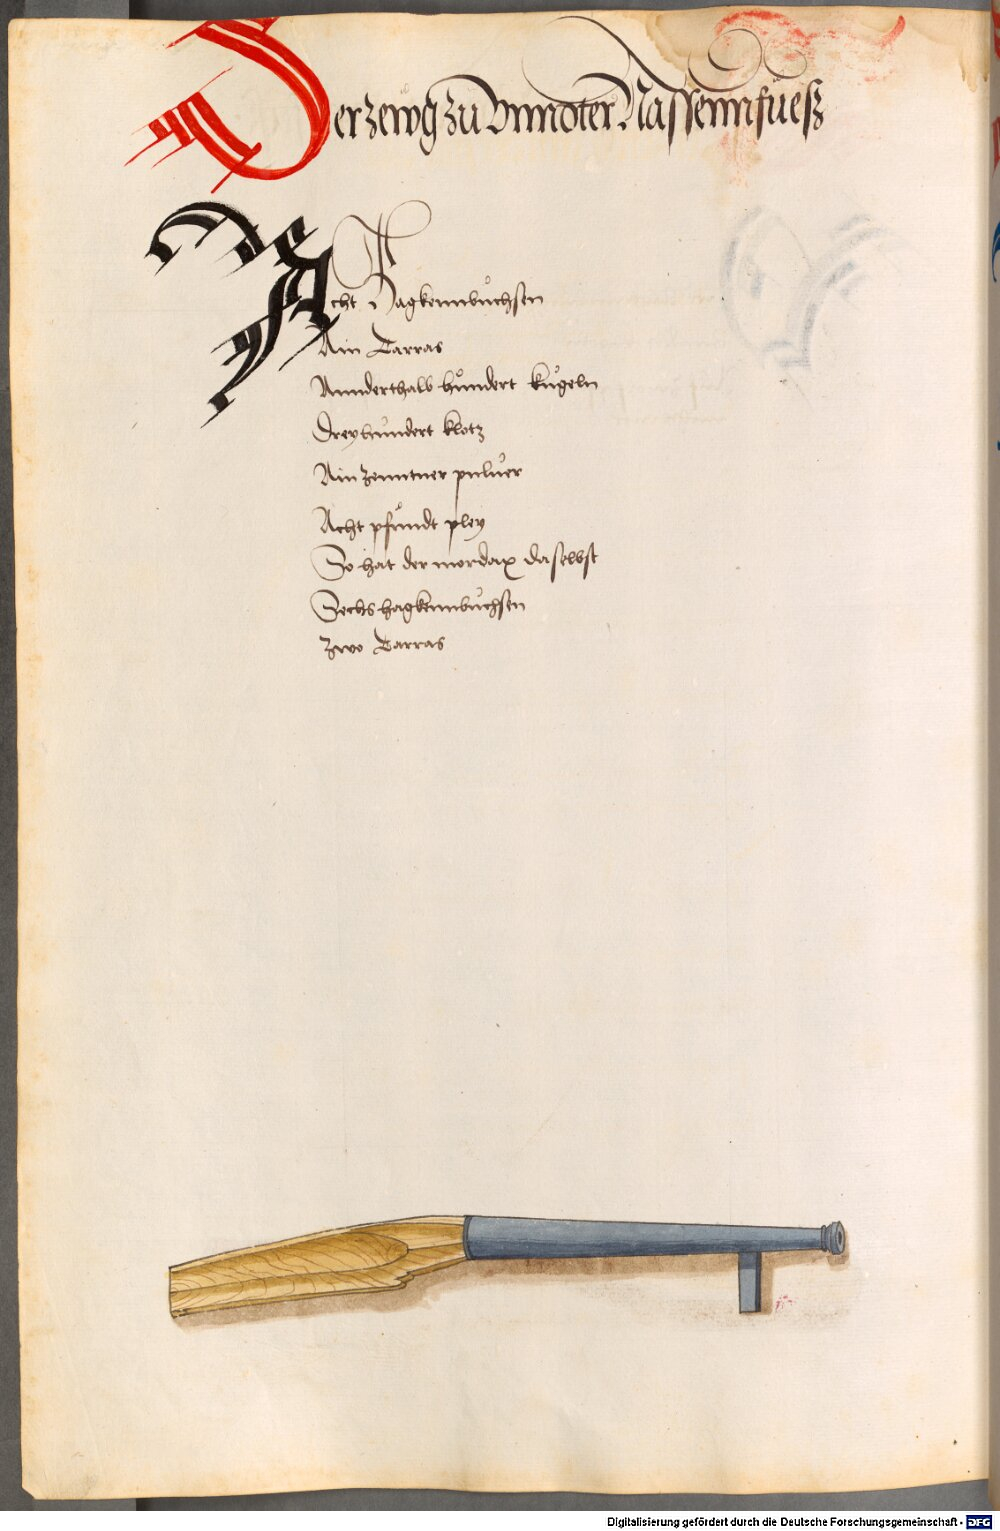 Der zewg zu Vnndter Nassennfuesß
Acht Hagkennbůchsen
Ain Tarras
Annderthalb hůndert kůgeln
Dreyhůndert klotz
Ain zenntner půluer
Acht pfůndt pley
So hat der mordax daselbst
Sechs hagkennbůchsen
Zwo Tarras
Digitalisierung gefördert durch die Deutsche Forschungsgemeinschaft - DFG